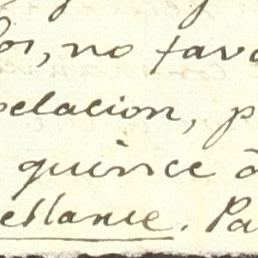 los, no favo
pelacion, p
quince d
ellante. Pa